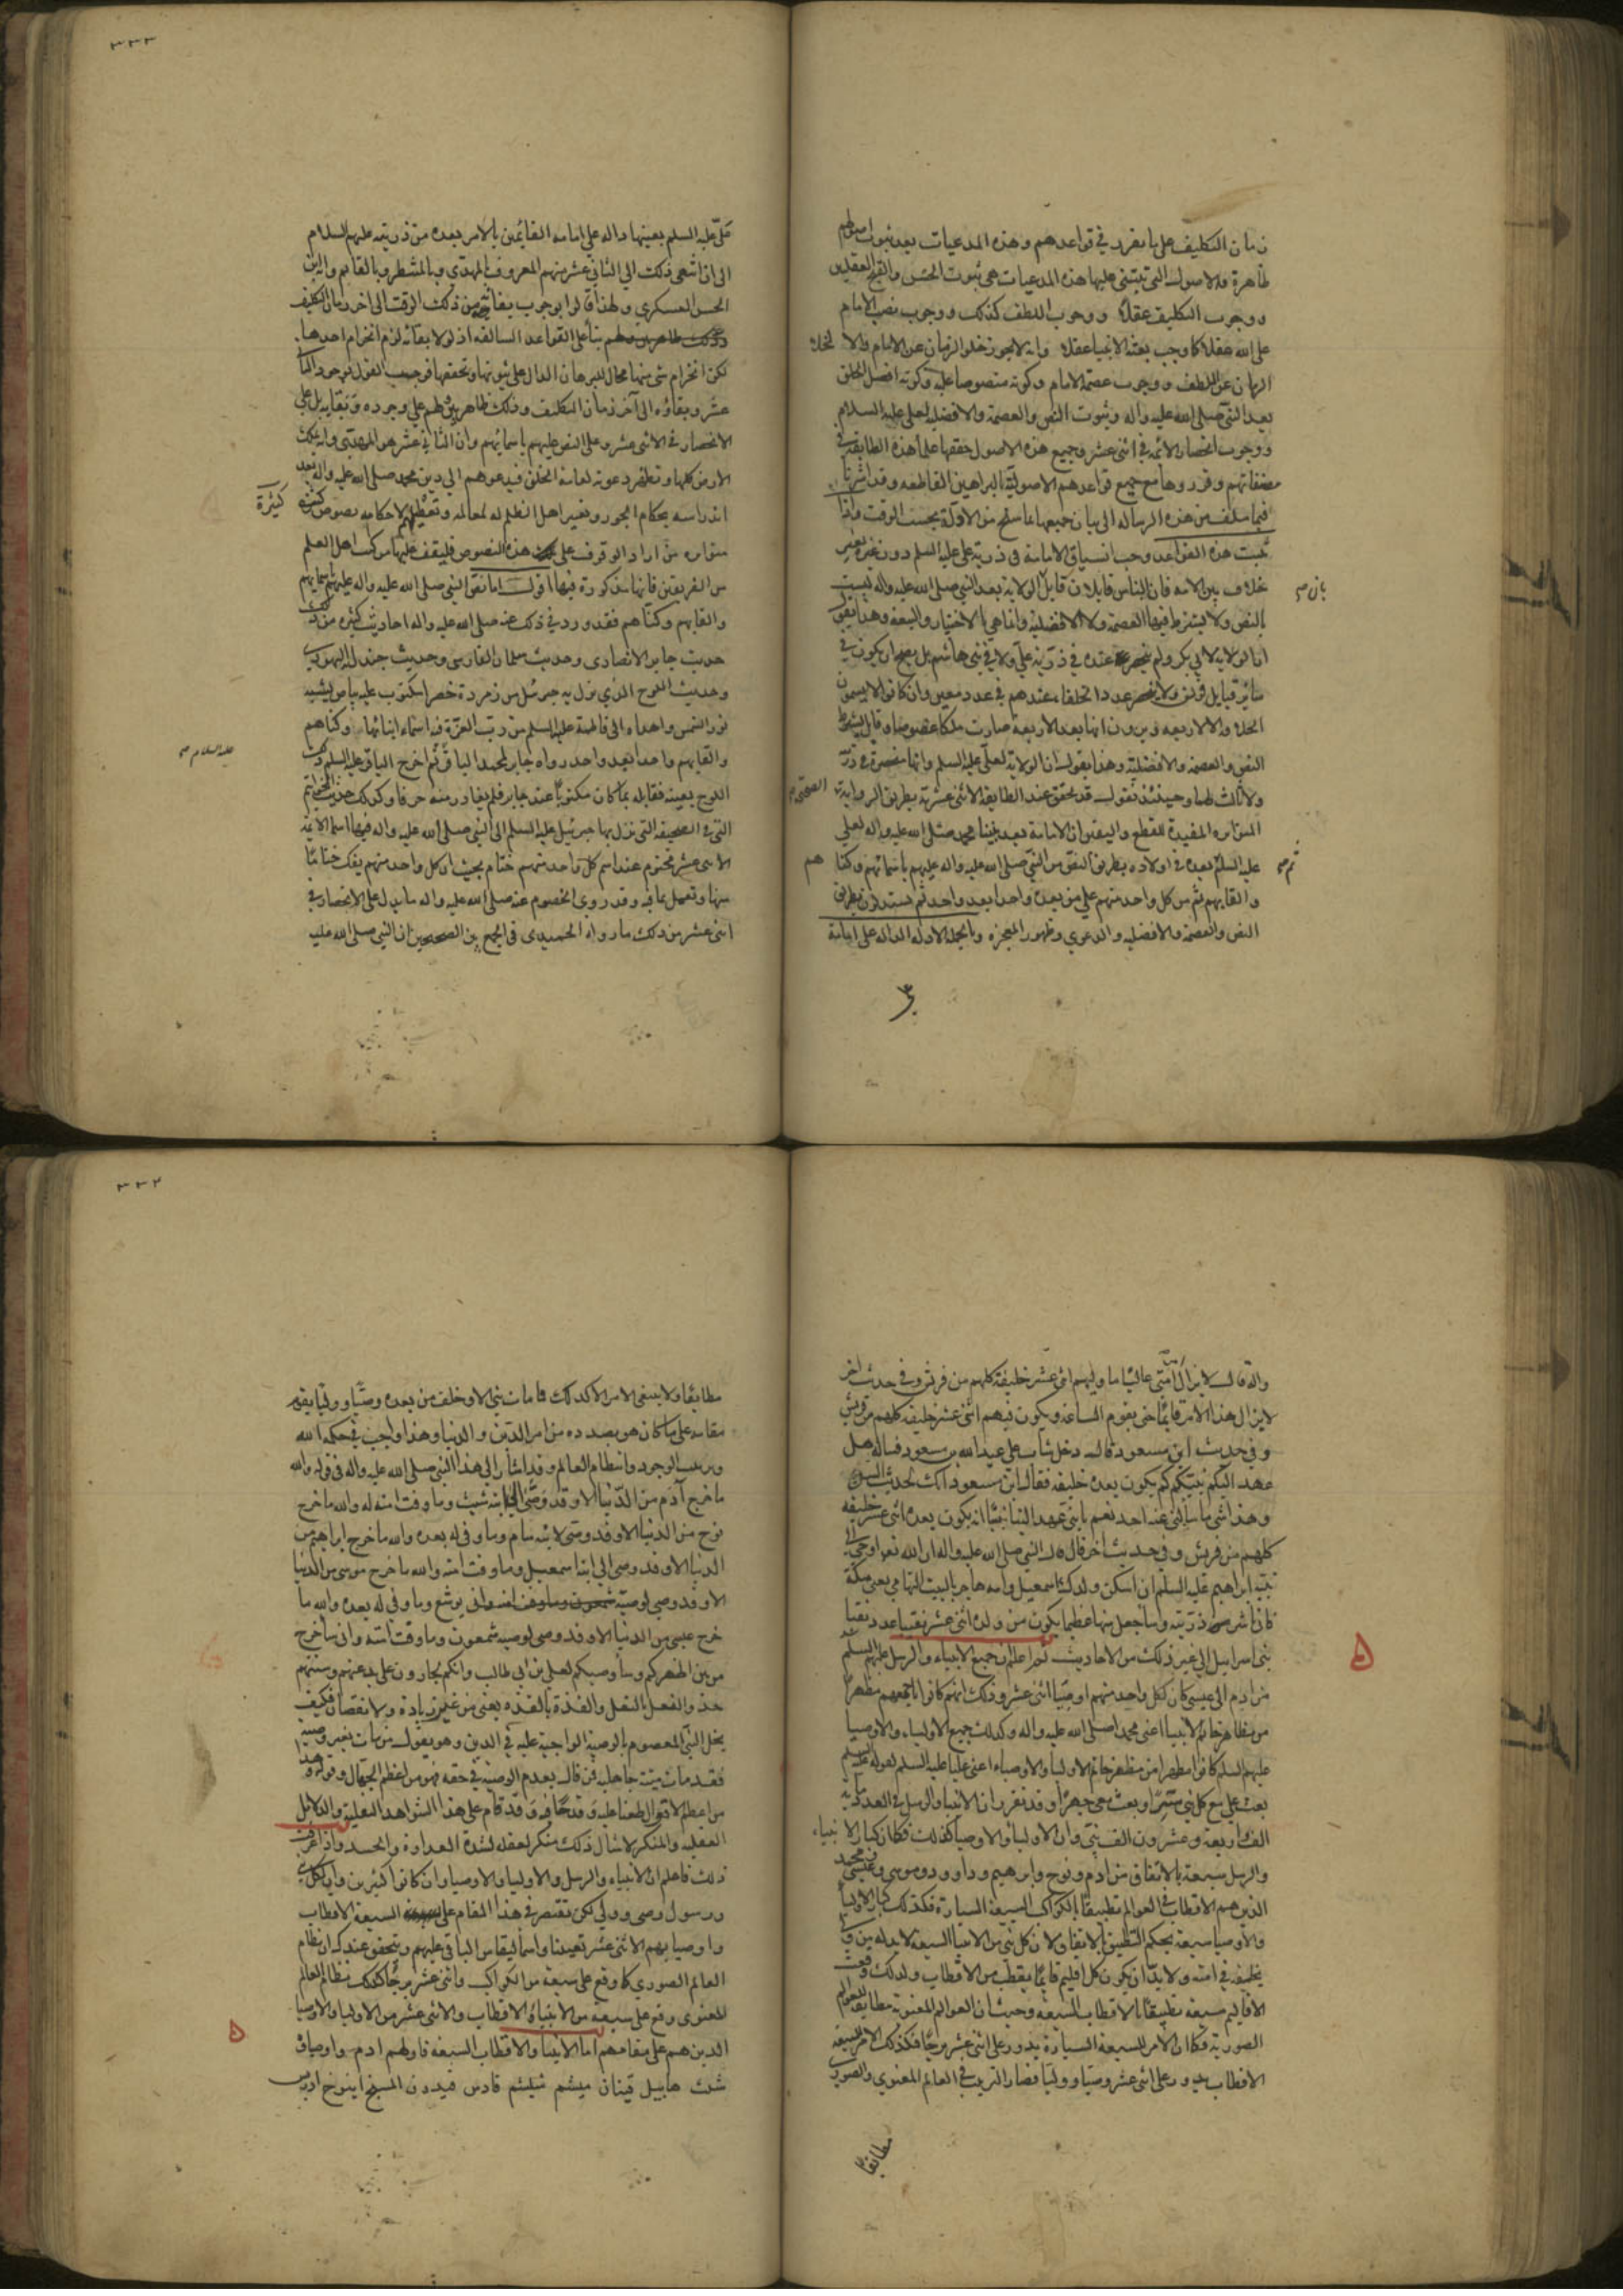 ٣٣٣
زمان التكليف على ما تقرر في قواعدهم وهذه المدعيات بعد ثبوت اصولهم
ظاهرة والاصول التي تبتني عليها هذه المدعيات هي ثبوت الحسن والقبح العقليين
ووجوب التكليف عقلا ووجوب اللطف كذلك ووجوب نصب الامام
على الله عقلا كما وجب بعثه الانبيا عقلا وانه لا يجوز خلو الزمان عن الامام والا لخلا
الزمان عن اللطف ووجوب عصمة الامام وكونه منصوصا عليه وكونه افضل الخلق
بعد النبي صلى الله عليه واله وثبوت النص والعصمة والافضليه لعلي عليه السلام
ووجوب انحصار الائمه في اثنى عشر وجميع هذه الاصول حققها علماء هذه الطايفة في
مصنفاتهم وقرروها مع جميع قواعدهم الاصولية بالبراهين القاطعه وقد اشرنا
فيما سلف من هذه الرساله الى بيان جميعها بما سنح من الادلة بحسب الوقت واذا
ثبتت هذه القواعد وجب انسياق الامامة في ذرية علي عليه السلم دون غيره بغير
خلاف بين الامه فان الناس قايلان قايل الولاية بعد النبي صلى الله عليه واله ليست
بان ص
بالنص ولا يشترط فيها العصمة ولا الافضلية وانما هي بالاختيار والبيعه وهذا يقول
ان الولاية لابي بكر ولم ينحصر عنده في ذرية علي ولا في بني هاشم بل يصح ان يكون في
سائر قبايل قريش ولا ينحصر عدد الخلفاء عندهم في عدد معين وان كانوا لا يسمون
الخلفا الا الاربعه ويرون انها بعد الاربعة صارت ملكا عضوضا وقايل يشترط
النص والعصمه والافضلية وهذا يقول ان الولاية لعلي عليه السلم وانها منحصرة في ذريته
ولا ثالث لهما وحينئذ نقول قد تحقق عند الطايفة الاثني عشرية بطريق الرواية
المتواتره المفيدة للقطع واليقين ان الامامة بعد نبينا محمد صلى الله عليه واله لعلي
عليه السلم بعده في اولاده بطريق النص من النبي صلى الله عليه واله عليهم باسمائهم وكناهم
والقابهم ثم من كل واحد منهم على من بعده واحدا بعد واحد ثم يستدلون بطريق
النص والعصمة والافضليه والدعوي وظهور المعجزه وبالجمله الادله الداله على امامة
علي عليه السلم بعينها داله على امامه القائمين بالامر بعده من ذريته عليهم السلام
الى ان انتهى ذلك الى الثاني عشر منهم المعروف بالمهدي وبالمنتظر وبالقايم وابن
الحسن العسكري ولهذا قالوا بوجوب بقائه من ذلك الوقت الى اخر زمان التكليف
بناء على القواعد السالفه اذ لولا بقائه لزم انخرام احدها
لكن انخرام شي منها محال للبرهان الدال على ثبوتها وتحققها فوجب القول بوجود الثاني
عشر وبقاؤه الى آخر زمان التكليف وذلك ظاهر على وجوده وبقايه بل على
الانحصار في الاثنى عشر وعلى النص عليهم باسمائهم وان الثاني عشر هو المهدي وانه يملك
الارض كلها وتظهر دعوته لعامة الخلق فيدعوهم الى دين محمد صلى الله عليه واله بعد
اندراسه بحكام الجور وتغير اهل الظلم له لمعالمه وتعطيلهم لاحكامه نصوص كثيرة
متواتره من اراد الوقوف على هذه النصوص فليقف عليها من كتب اهل العلم
من الفريقين فانها مذكورة فيها اقول اما نص النبي صلى الله عليه واله عليهم باسمايهم
والقابهم وكناهم فقد ورد في ذلك عنه صلى الله عليه واله احاديث كثيره من ذلك
حديث جابر الانصاري وحديث سلمان الفارسى وحديث جندل اليهودي
وحديث اللوح الذي نزل به جبرئيل من زمردة خضرا مكتوب عليه بياض يشبه
نور الشمس واهداه الى فاطمة عليه السلم من رب العزة فيه اسماء ابنائها وكناهم
والقابهم واحدا بعد واحد رواه جابر لمحمد الباقر ثم اخرج الباقر عليه السلم ذلك
عليه السلام ص
اللوح بعينه فقابله بما كان مكتوبا عند جابر فلم يغادر منه حرفا وكذلك حديث الخواتيم
التي في الصحيفه التي نزل بها جبرئيل عليه السلم الى النبي صلى الله عليه واله فيها اسما الائمه
الاثنى عشر مختوم عند اسم كل واحد منهم ختام بحيث ان كل واحد منهم يفك ختاما
منها ويعمل بما فيه وقد روى الخصوم عنه صلى الله عليه واله ما يدل على الانحصار في
اثنى عشر من ذلك ما رواه الحميدى في الجمع بين الصحيحين ان النبي صلى الله عليه
٣٣٢
واله قال لا يزال امتي عاليا ما وليهم اثنى عشر خليفة كلهم من قريش وفي حديث اخر
لا يزال هذا الامر قائما حتى يقوم الساعة ويكون فيهم اثنى عشر خليفه كلهم من قريش
وفي حديث ابن مسعود قال دخل شاب على عبد الله بن مسعود فساله هل
عهد اليكم نبيكم كم يكون بعده خليفه فقال ابن مسعود انك لحديث السن
وهذا شي ما سالني عنه احد نعم يا بني عهد الينا نبينا انه يكون بعده اثنى عشر خليفه
كلهم من قريش وفي حديث آخر قال قال النبي صلى الله عليه واله ان الله تعم اوحى الى
نبيه ابراهيم عليه السلم ان اسكن ولدك اسمعيل وامه هاجر بالبيت التهامي يعني مكة
فاني ناشر ذريته وساجعل منها عظيما يكون من ولده اثنى عشر نقيبا عدد نقبا
بني اسرائيل الى غير ذلك من الاحاديث ثم اعلم ان جميع الانبياء والرسل عليهم السلم
من ادم الى عيسى كان لكل واحد منهم اوصيا اثنى عشر وذلك انهم كانوا باجمعهم مظهرا
من مظاهر خاتم الانبيا اعني محمدا صلى الله عليه واله وكذلك جميع الاولياء والاوصيا
عليهم السلم كانوا مظهرا من مظاهر خاتم الاوليا والاوصياء اعني عليا عليه السلم لقوله عليه السلم
بعث علي مع كل نبي سرا وبعث معي جهرا وقد تقرر ان الانبيا والرسل في العدد مائة
الف واربعة وعشرون الف نبي وان الاوليا والاوصيا كذلك فكما ان كبار الانبياء
والرسل سبعة بالاتفاق من ادم ونوح وابرهيم وداوود وموسى وعيسى ومحمد
الذين هم الاقطاب في العوالم تطبيقا بالكواكب السبعة السيارة فكذلك كبار الاوليا
والاوصيا سبعة بحكم التطبيق بالاتفاق ولان كل نبي من الانبيا السبعة لا بد له من وصي
يخلفه في امته ولا بد ان يكون كل اقليم قائما بقطب من الاقطاب ولذلك وقعت
الاقاليم سبعه تطبيقا بالاقطاب السبعة وحيث ان العوالم المعنوية مطابقة للعوالم
الصورية فكما ان الامر للسبعه السيارة يدور على اثنى عشر برجا فكذلك الامر للسبعه
الاقطاب يدور على اثنى عشر وصيا ووليا فصار الترتيب في العالم المعنوي والصوري
مطابقا
مطابقا ولا ينبغي الامر الا كذلك فما مات نبي الا وخلف من بعده وصيا ووليا يقوم
مقامه على ما كان هو بصدده من امر الدين والدنيا وهذا واجب في حكمة الله
وترتيب الوجود وانتظام العالم وقد اشار الى هذا النبي صلى الله عليه واله في قوله والله
ما خرج آدم من الدنيا الا وقد وصى الى ابنه شيث وما وفت امته له والله ما خرج
نوح من الدنيا الا وقد وصى لابنه سام وما وفى له بعده والله ما خرج ابراهيم من
الدنيا الا وقد وصى الى ابنه اسمعيل وما وفت امته والله ما خرج موسى من الدنيا
الا وقد وصى لوصيه يوشع وما وفى له بعده والله ما
خرج عيسى من الدنيا الا وقد وصى لوصيه شمعون وما وفت امته واني ساخرج
من بين اظهركم وساوصيكم لعلي بن ابي طالب وانكم لجارون على بدعتهم وسنتهم
حذو النعل بالنعل والقذة بالقذه يعني من غير زيادة ولا نقصان فكيف
يخل النبي المعصوم بالوصية الواجبة عليه في الدين وهو يقول من مات بغير وصية
فقد مات ميتة جاهلية فمن قال بعدم الوصية في حقه فهو من اعظم الجهال وقوله هذا
من اعظم الاقوال طعنا عليه وقدحا فيه وقد قام على هذا الشواهد النقلية والدلائل
العقليه والمنكر لامثال ذلك منكر لعقله لشدة العداوة والحسد واذا عرفت
ذلك فاعلم ان الانبياء والرسل والاوليا والاوصيا وان كانوا كثيرين وان لكل نبي
ورسول وصى وولي لكن نقتصر في هذا المقام على السبعة الاقطاب
واوصيايهم الاثنى عشر تعيينا واسما ليقاس الباقي عليهم ويتحقق عندك ان نظام
العالم الصوري كما وقع على سبعة من الكواكب واثنى عشر برجا كذلك نظام العالم
المعنوى وقع على سبعة من الانبياء والاقطاب والاثنى عشر من الاوليا والاوصيا
الذين هم على مقامهم اما الانبيا والاقطاب السبعه فاولهم ادم واوصياؤه
شيث هابيل قينان ميشم شيشم قادس قيدون ايمنوخ ادريس